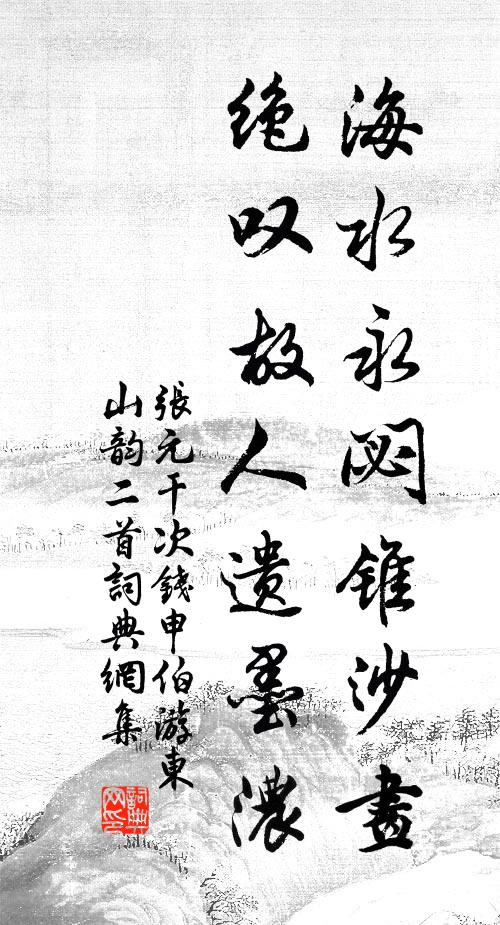 海水永閟錐沙畫
絶叹故人遗墨濃
張元干次錢申伯游東
山韵二首詞典網集
詞典网印